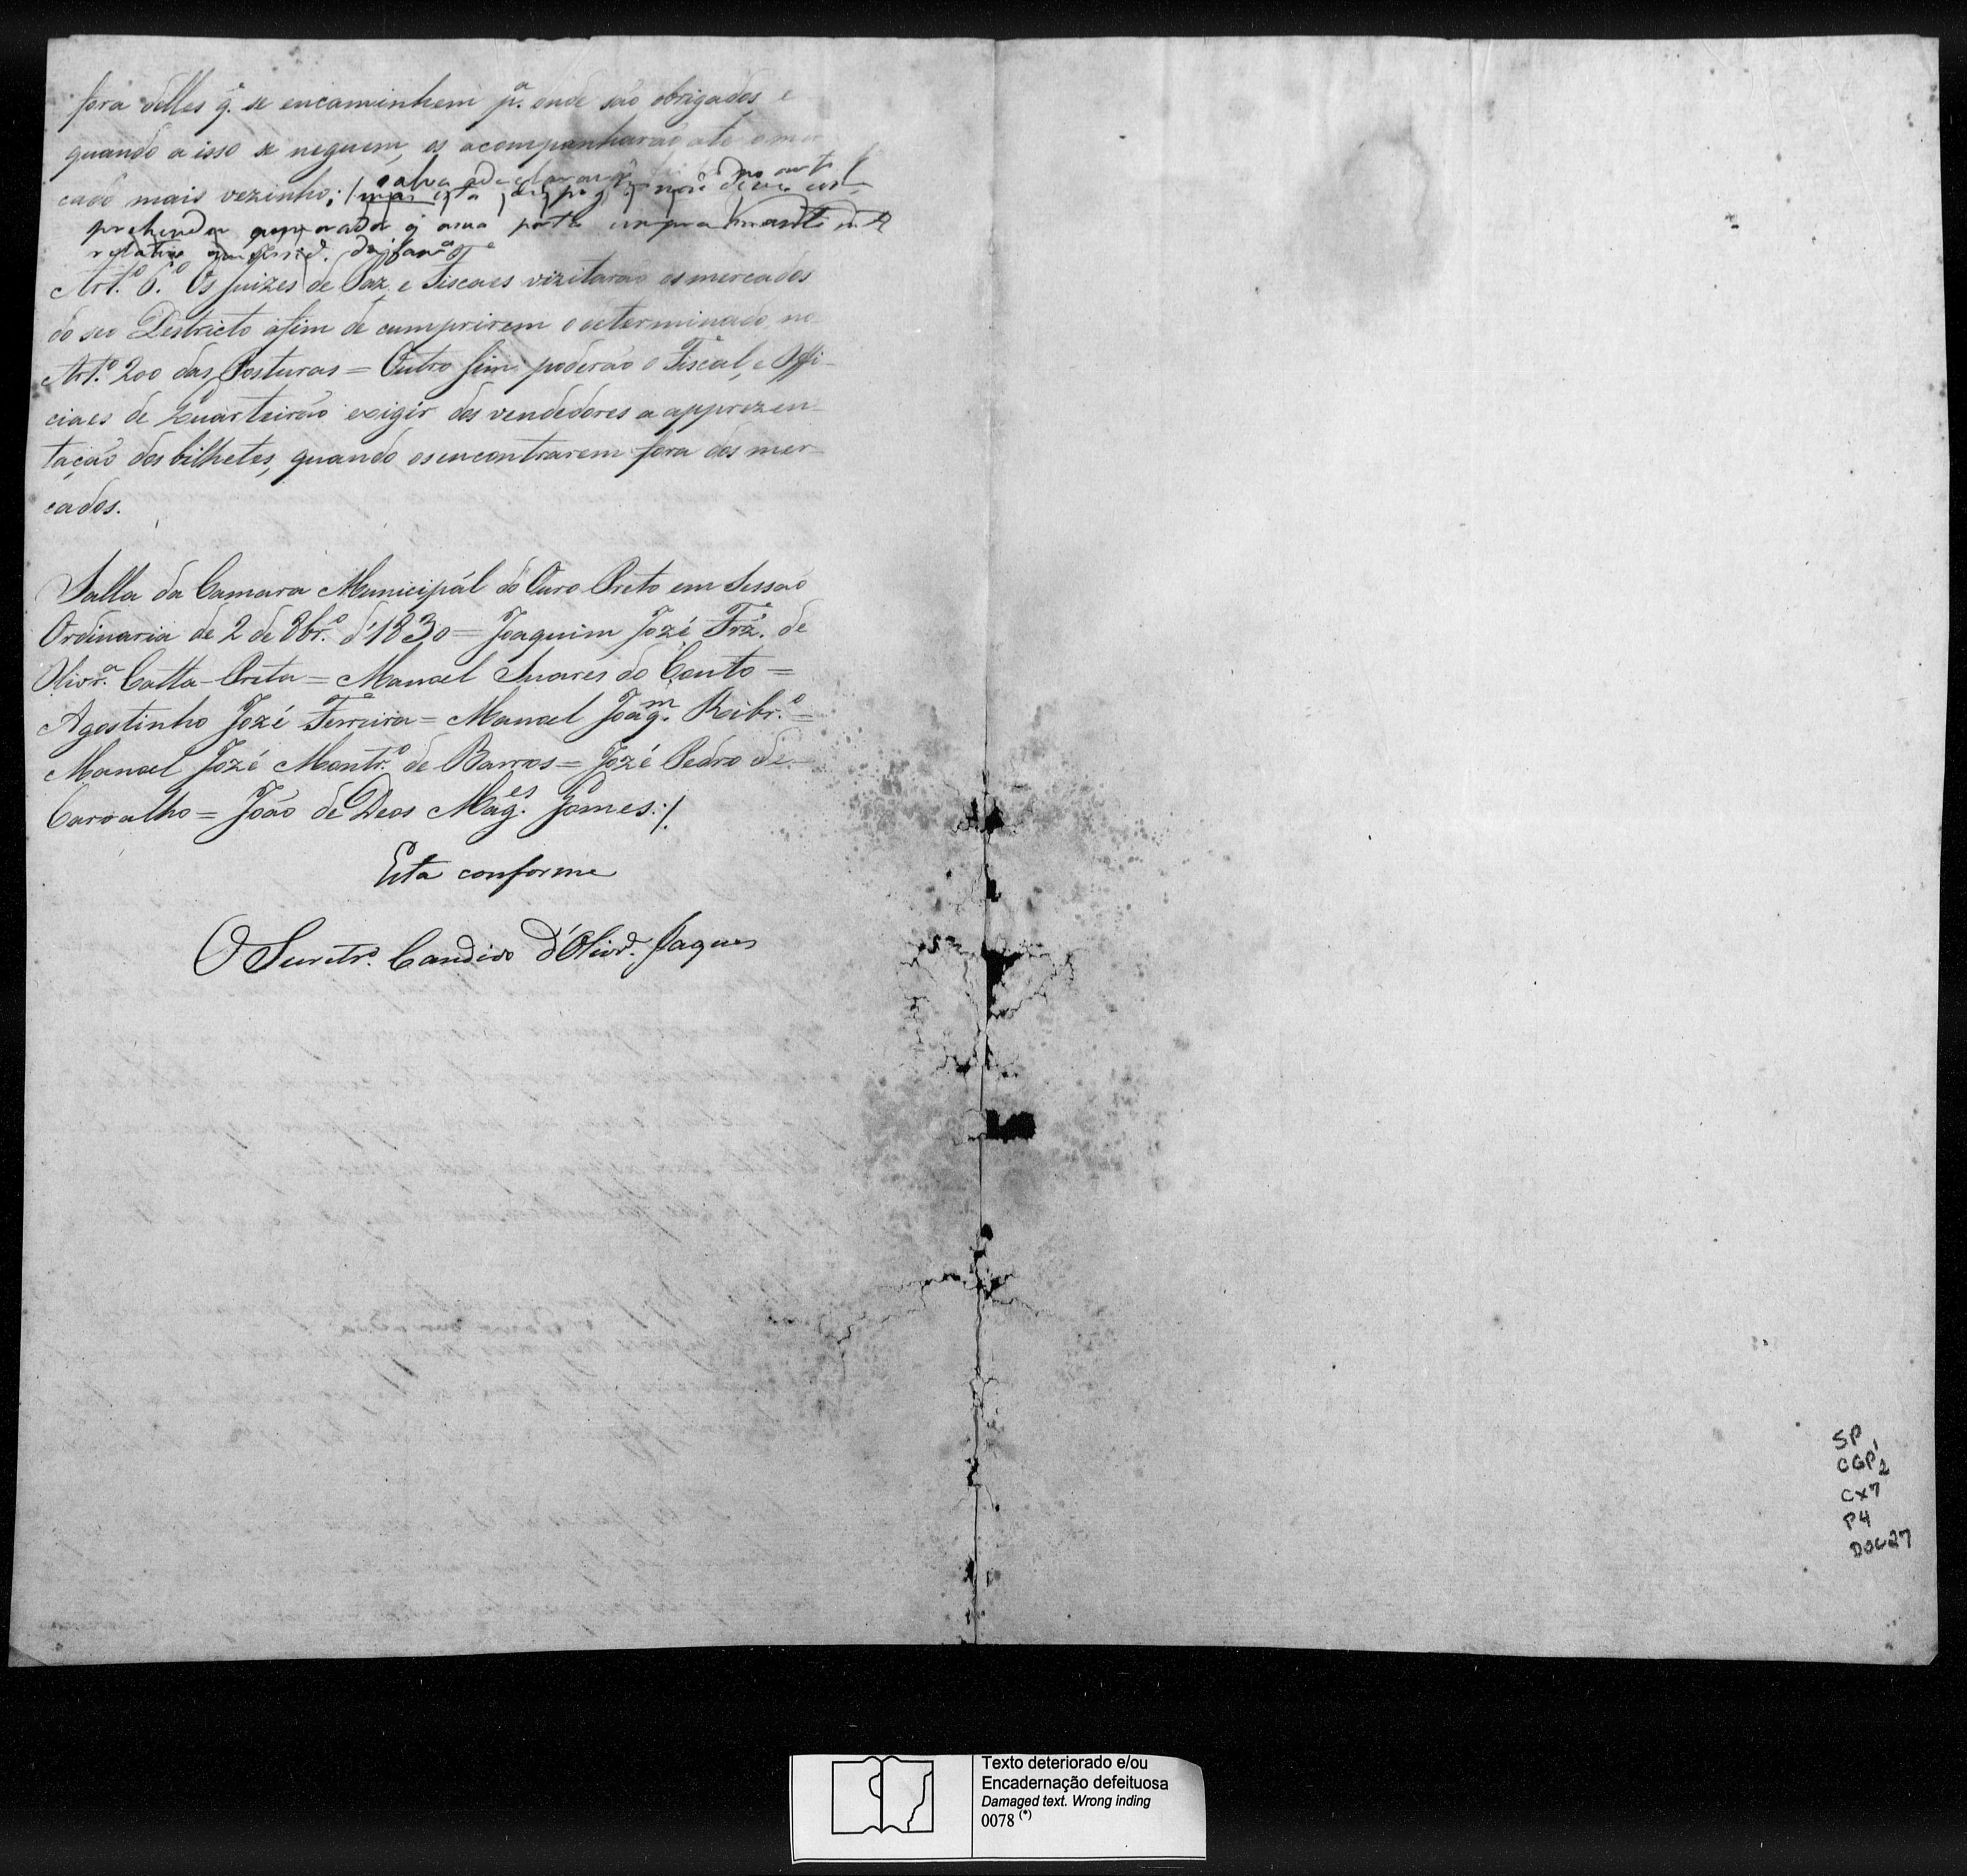 fora delles q.^e se encaminhem p.^a onde são obrigados e
quando a isso se neguem, os acompanharaõ até o mer
cado mais vezinho;
salva a declaração
Art.^o 6.^o Os Juizes de Paz e Fiscaes vizitarão os mercados
do seo Destricto afim de cumprirem o determinado no
Art.^o 200 das Posturas = Outro sim poderão o Fiscal, e Offi-
ciaes de Quarteirão exigir dos vendedores a apprezen-
tação dos bilhetes, quando os encontrarem fora dos mer-
cados.
Salla da Camara Municipál do Ouro Preto em Sessaõ
Ordinaria de 2 de 8br.^o d'1830 = Joaquim Jozé Frz.^e de
Olivr.^a Catta-Preta = Manoel Soares do Couto =
Agostinho Jozé Ferreira = Manoel Joaq.^m Ribr.^o =
Manoel Jozé Montr.^o de Barros = Jozé Pedro de
Carvalho = João de Deos Mag.^es Gomes./.
Esta conforme
O Secretr.^o Candido d'Olivr.^a Jaques
SP
CGP 1/2
CX7
P4
DOC27
Texto deteriorado e/ou
Encadernação defeituosa
Damaged text. Wrong inding
0078 (*)